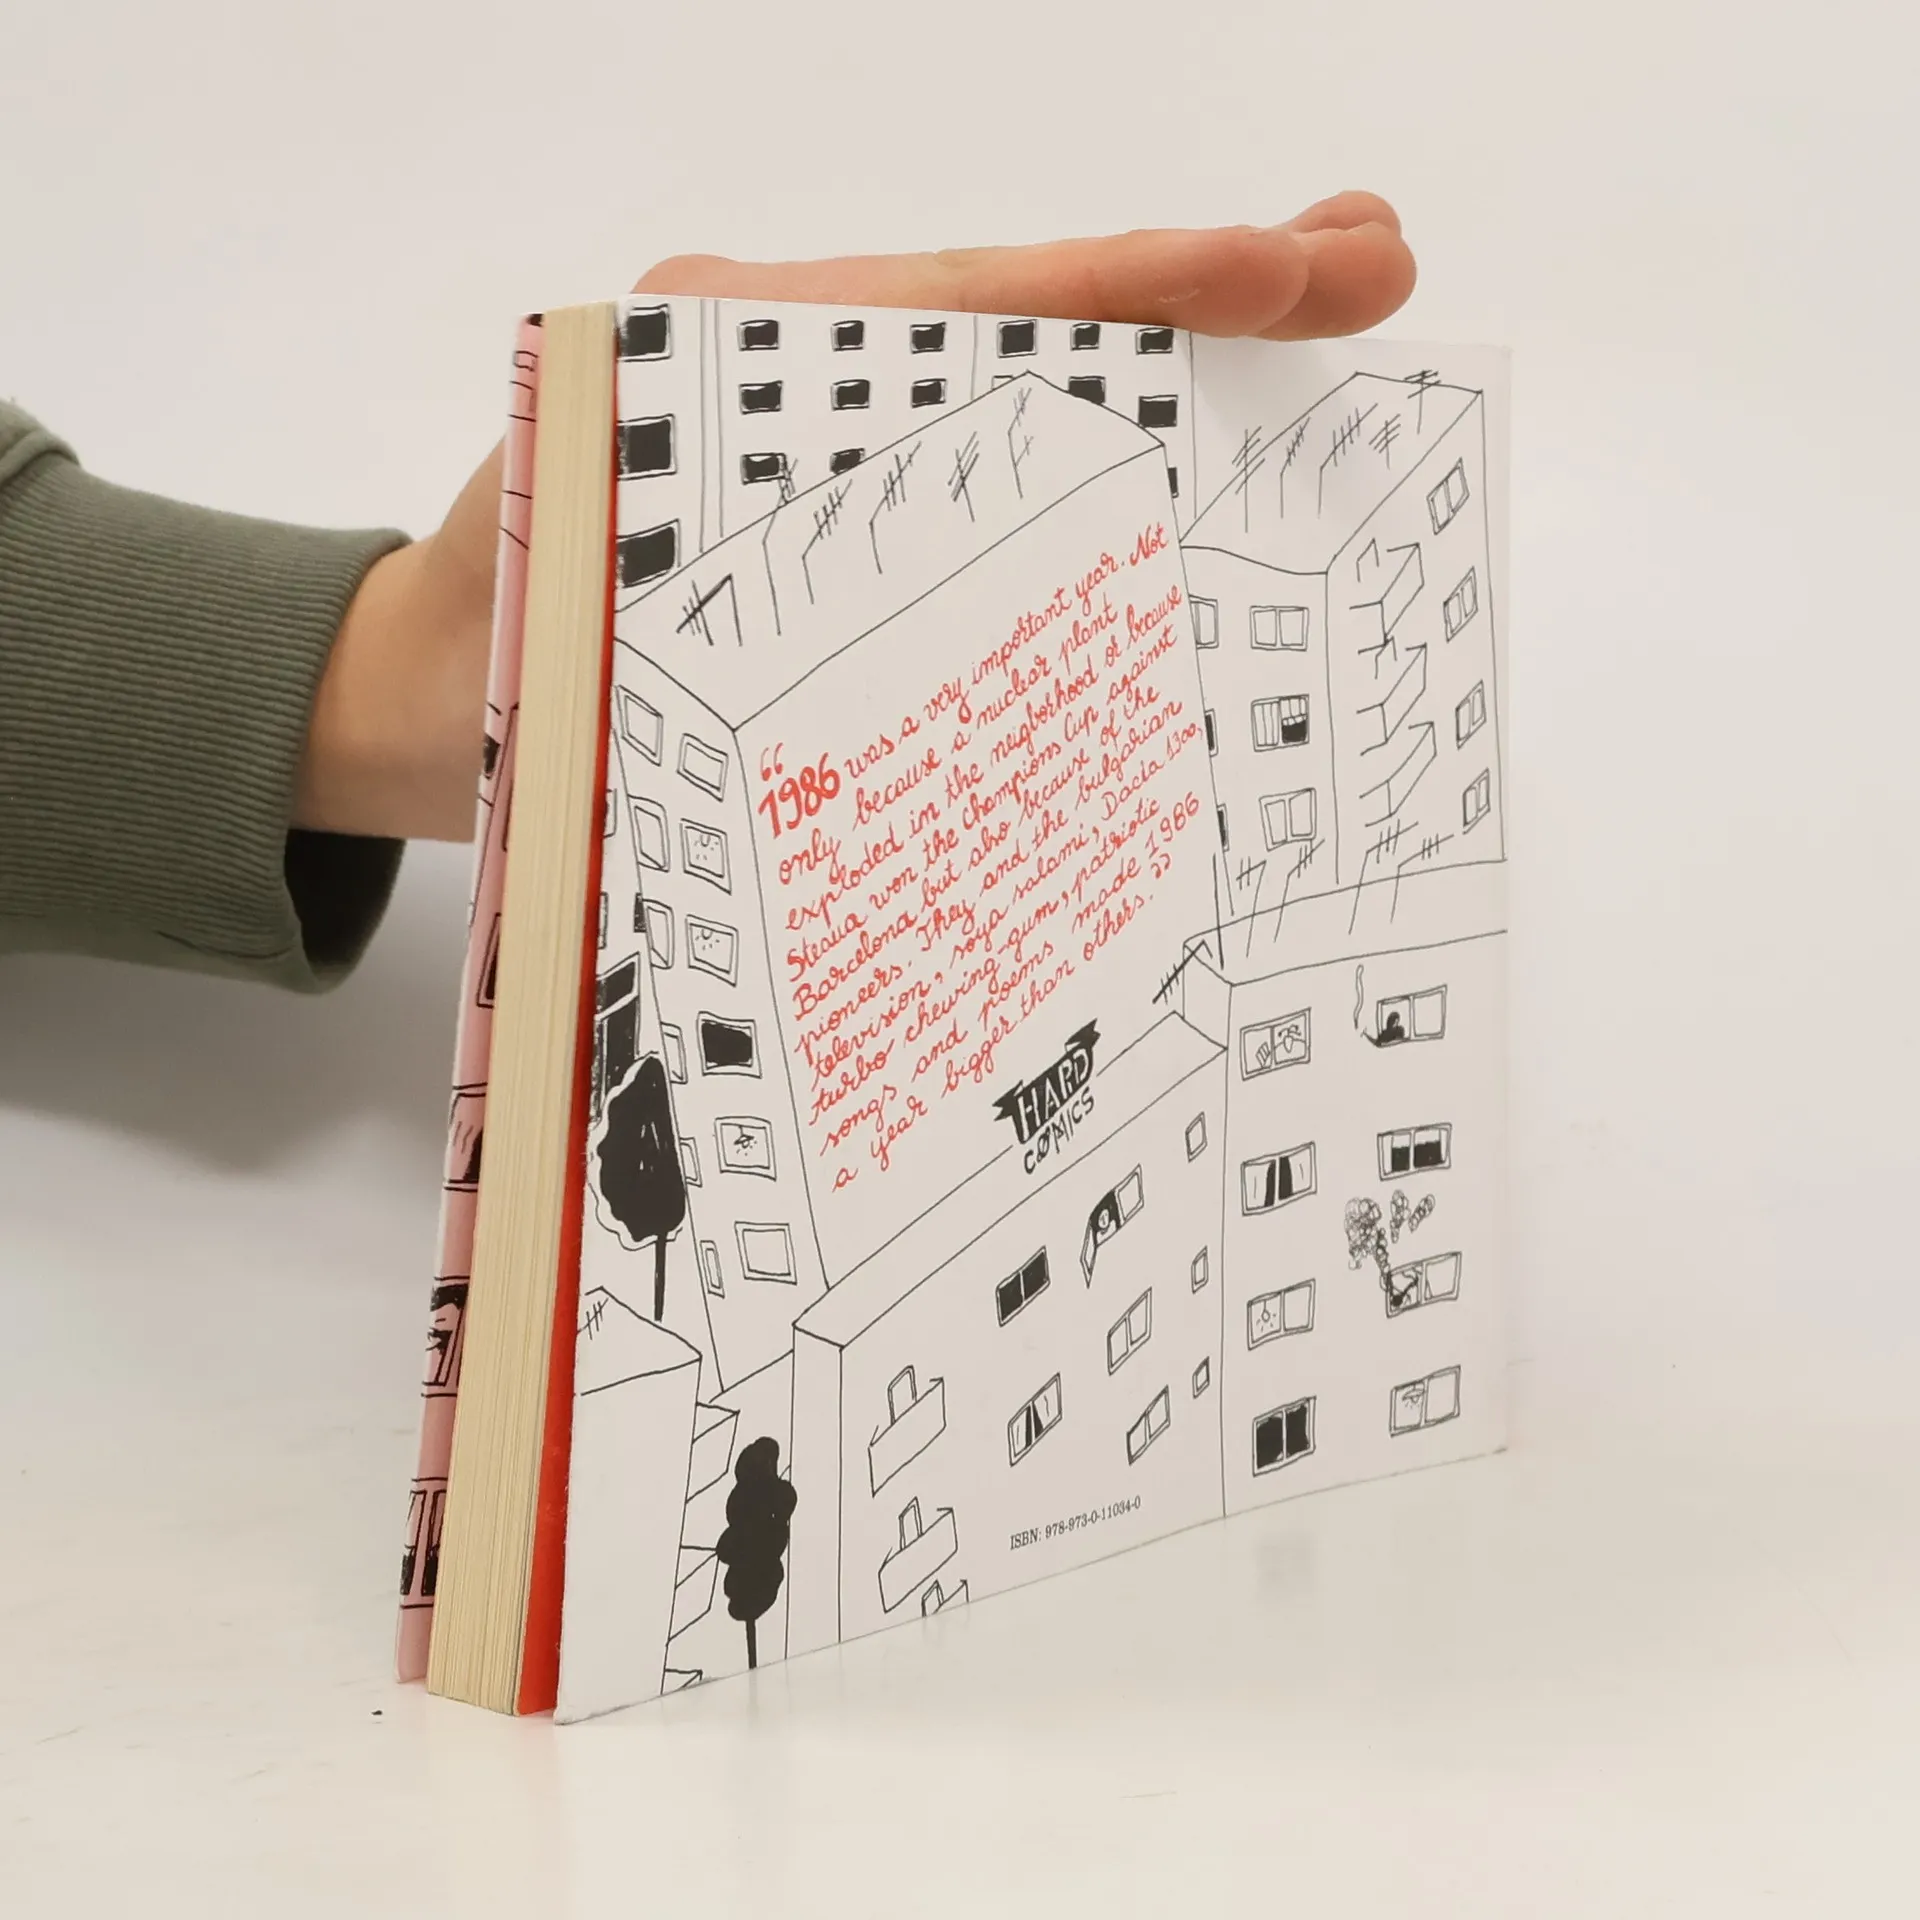 “
1986 was a very important year. Not
only because a nuclear plant
exploded in the neigborhood or because
Steaua won the Champions Cup against
Barcelona but also because of the
pioneers. They and the bulgarian
television, soya salami, Dacia 1300,
turbo chewing-gum, patriotic
songs and poems made 1986
a year bigger than others.”
HARD
COMICS
ISBN: 978-973-0-11034-0